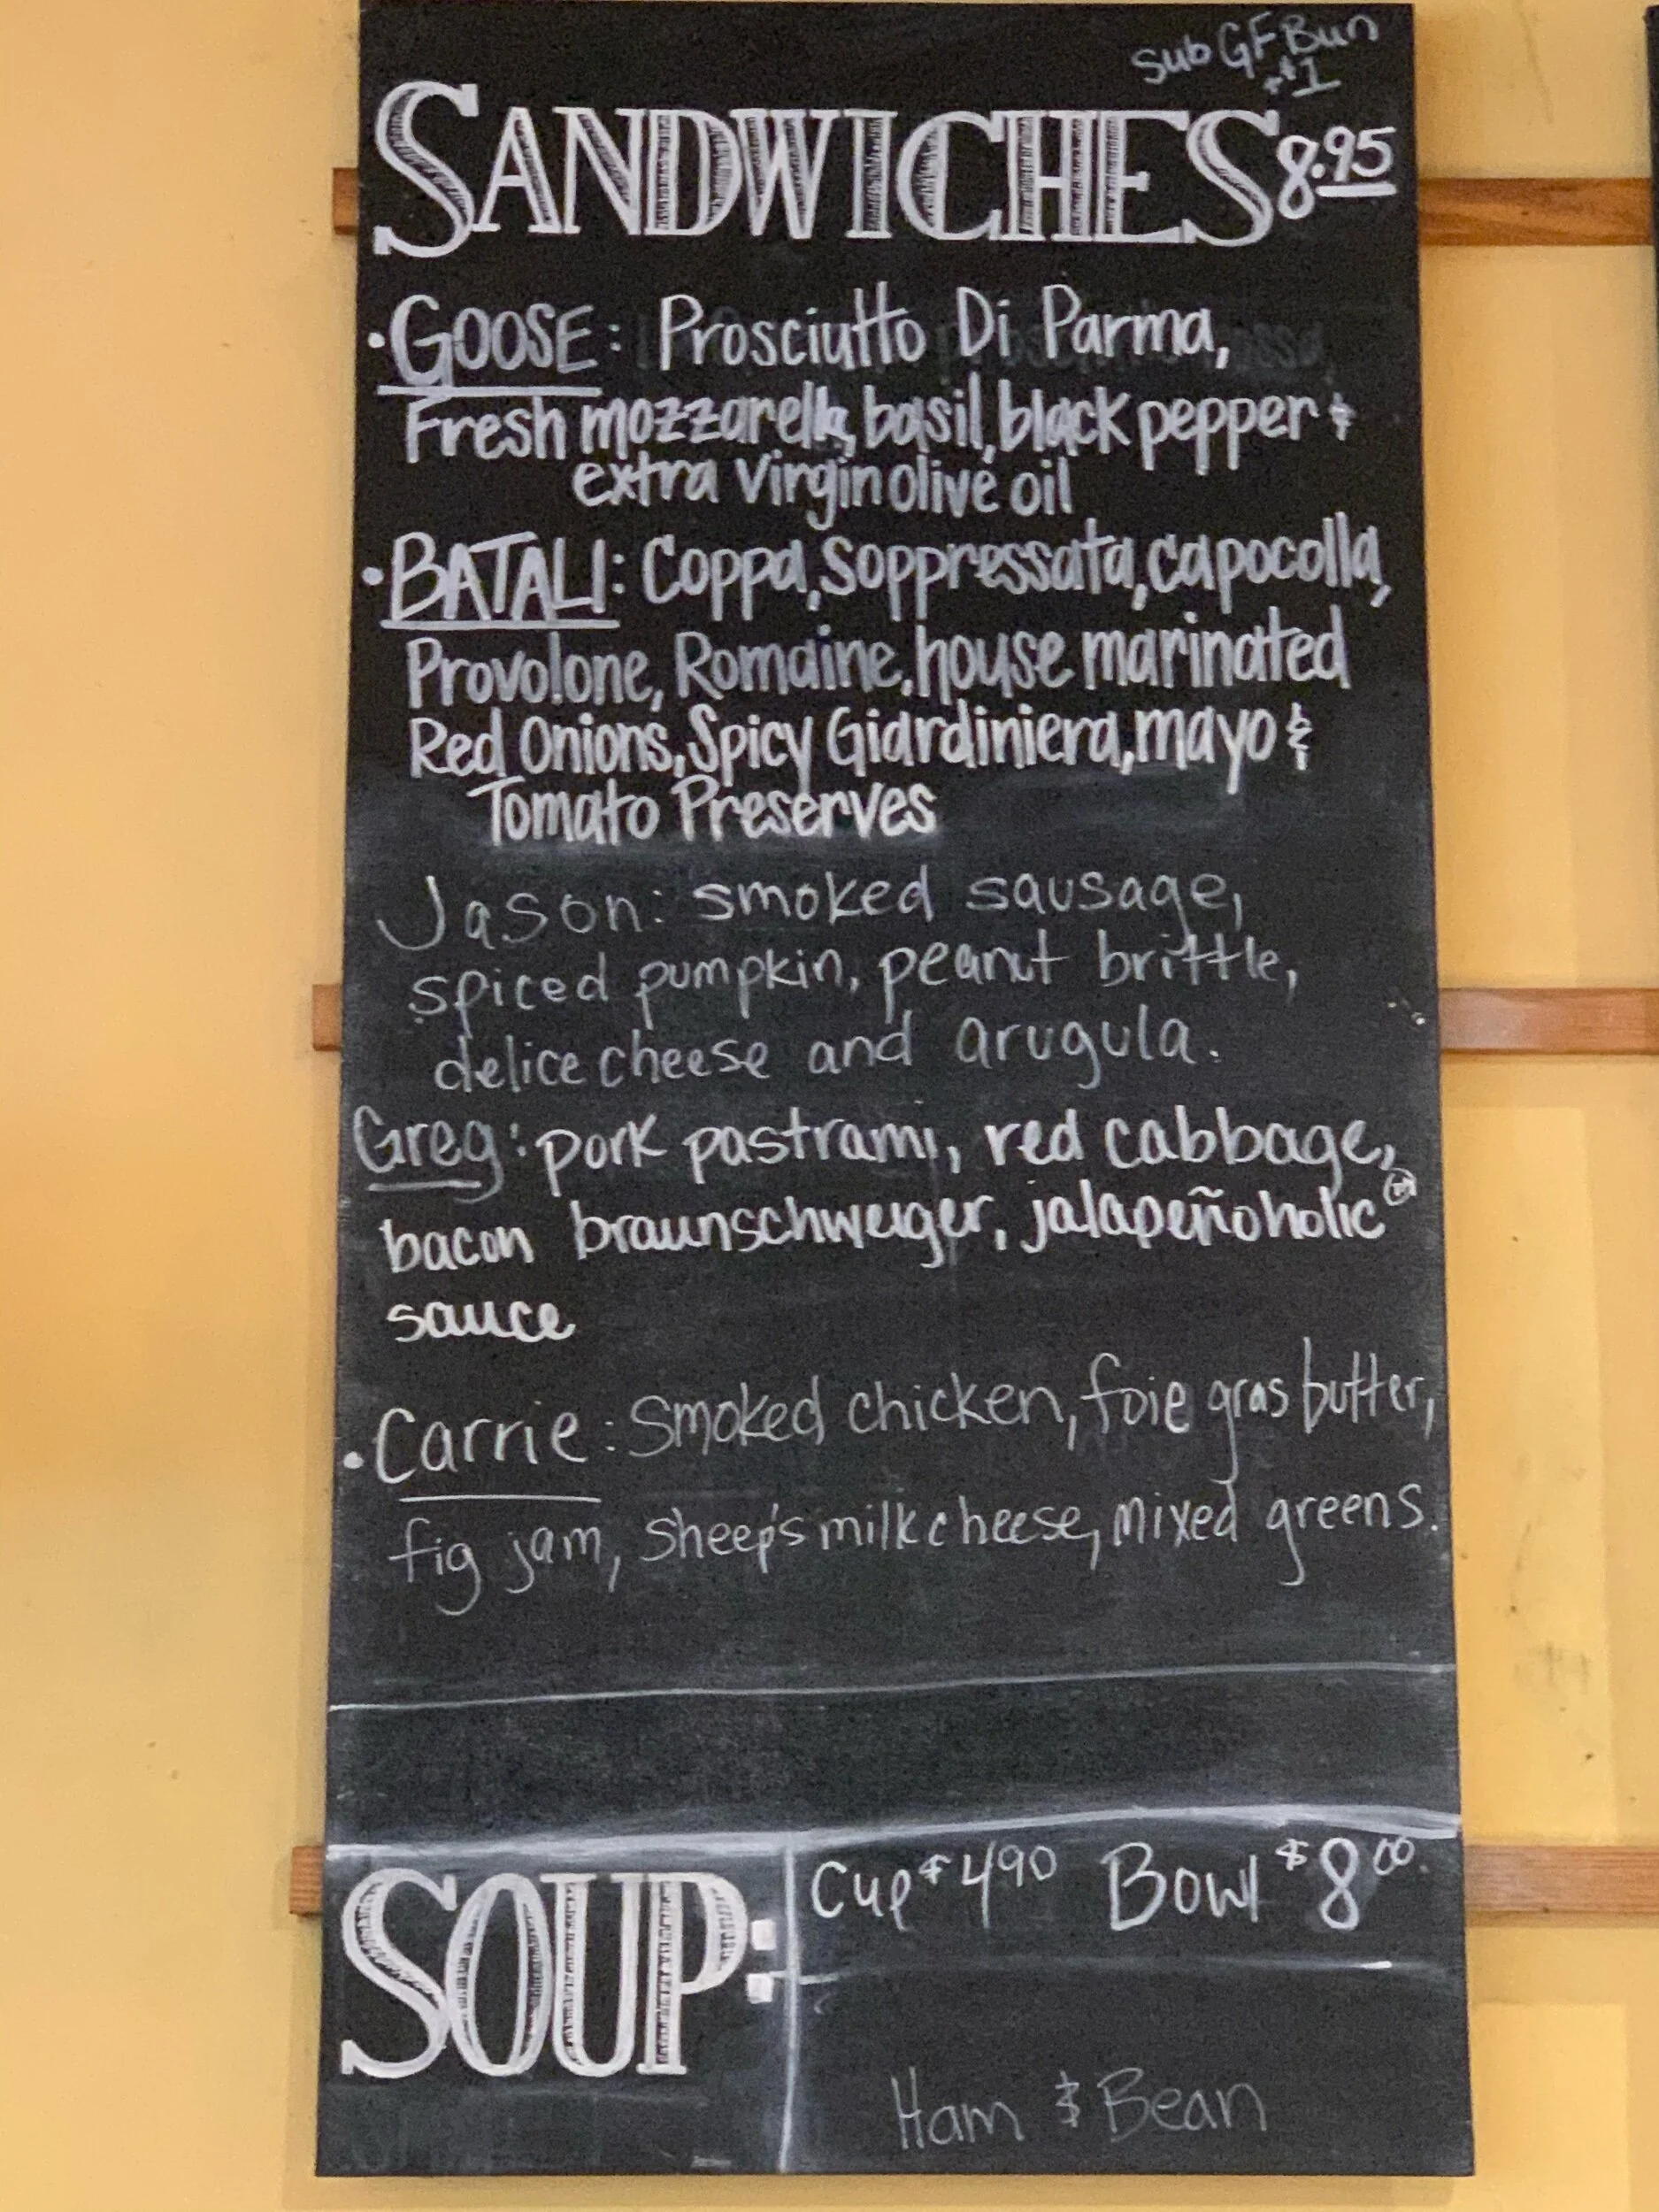 Sub GF Bun
+$1
SANDWICHES 8.95
•GOOSE: Prosciutto Di Parma,
Fresh mozzarella, basil, black pepper &
extra virgin olive oil
•BATALI: Coppa, Soppressata, capocolla,
Provolone, Romaine, house marinated
Red Onions, Spicy Giardiniera, mayo &
Tomato Preserves
Jason: smoked sausage,
spiced pumpkin, peanut brittle,
delice cheese and arugula.
Greg: pork pastrami, red cabbage,
bacon braunschweiger, jalapeñoholic
sauce
•Carrie: Smoked chicken, foie gras butter,
fig jam, Sheep's milk cheese, mixed greens.
SOUP: Cup $4.90 Bowl $8.00
Ham & Bean